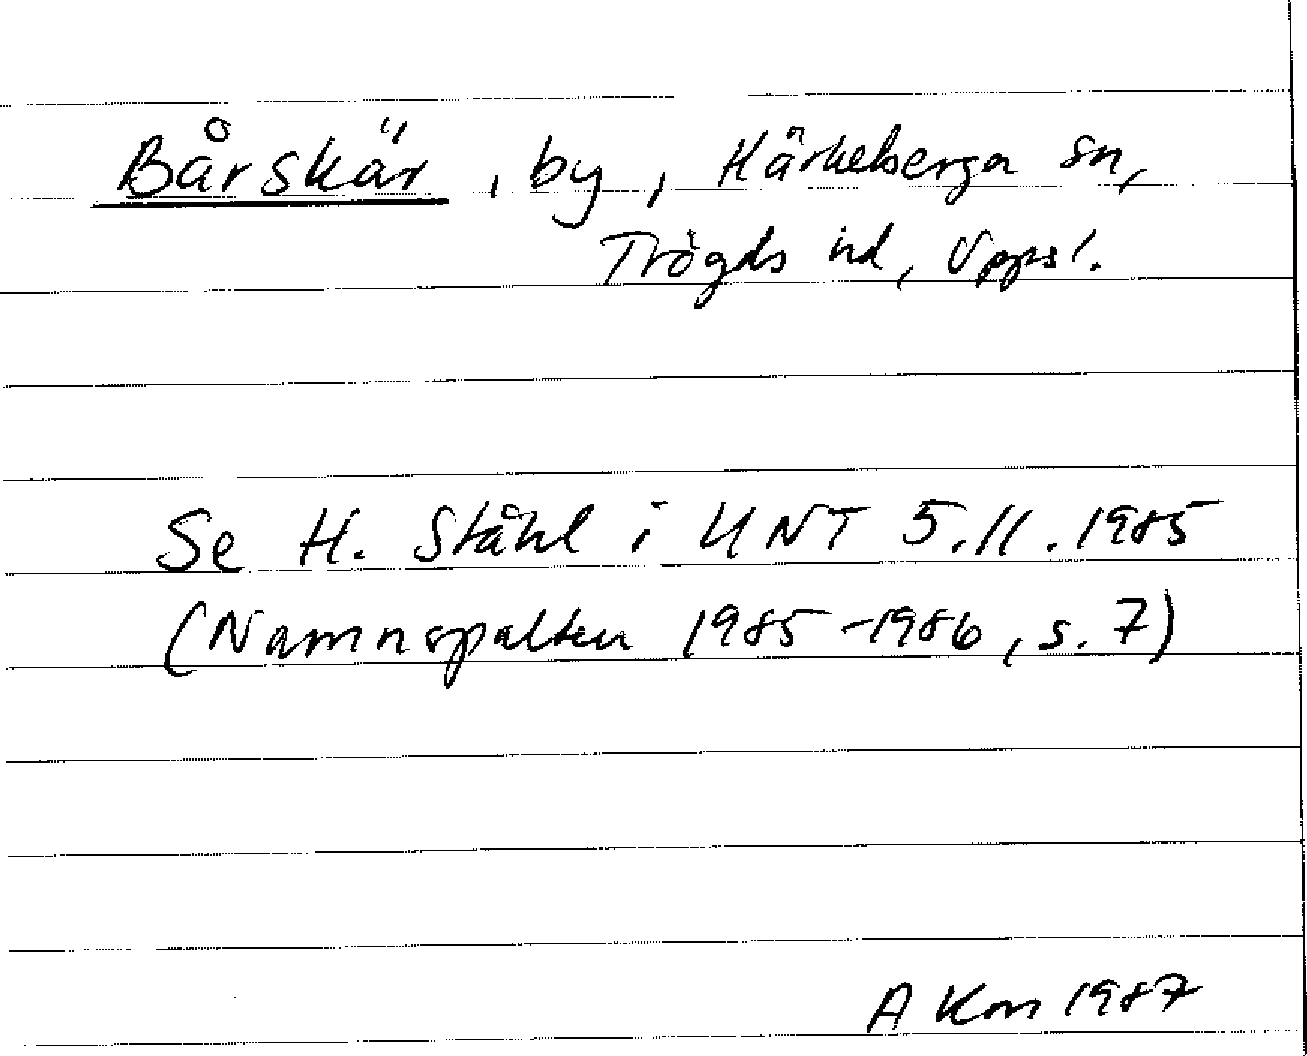 Bårskär, by, Härkeberga sn,
Trögds hd, Uppsl.
Se H. Ståhl i UNT 5.11.1985
(Namnspalten 1985-1986, s. 7)
A 1987